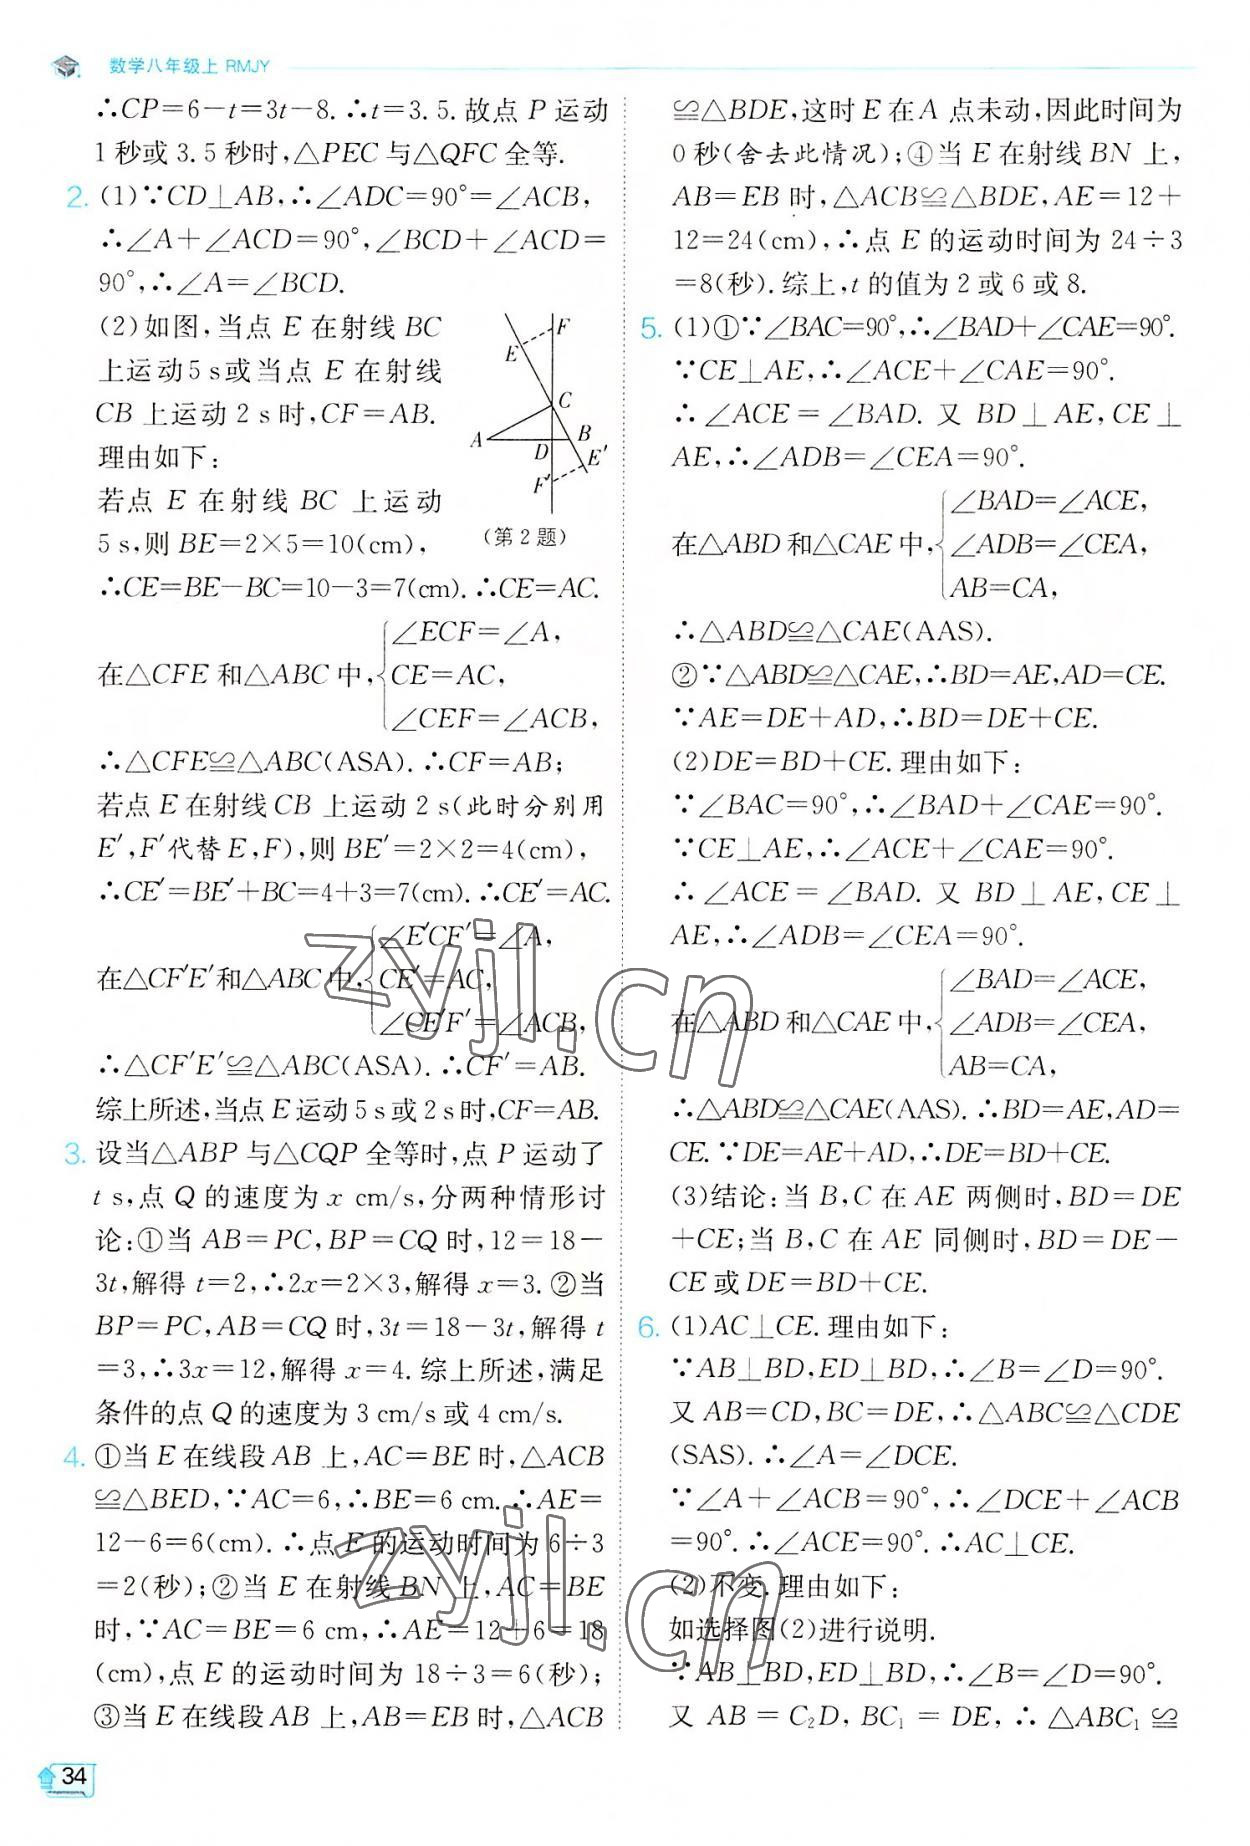 数学八年级上 RMJY
∴CP=6-t=3t-8.∴t=3.5.故点 P 运动
1秒或3.5秒时,△PEC与△QFC全等.
2. (1)∵CD⊥AB,∴∠ADC=90°=∠ACB,
∴∠A+∠ACD=90°,∠BCD+∠ACD=
90°,∴∠A=∠BCD.
(2)如图,当点 E 在射线 BC
上运动5 s或当点 E 在射线
CB 上运动 2 s 时,CF=AB.
理由如下:
若点 E 在射线 BC 上运动
5 s,则 BE=2×5=10(cm),
F
E
C
A
B
D
E′
F′
(第2题)
∴CE=BE-BC=10-3=7(cm).∴CE=AC.
在△CFE 和△ABC 中,
∠ECF=∠A,
CE=AC,
∠CEF=∠ACB,
∴△CFE≌△ABC(ASA).∴CF=AB;
若点 E 在射线 CB 上运动 2 s(此时分别用
E′,F′代替 E,F),则 BE′=2×2=4(cm),
∴CE′=BE′+BC=4+3=7(cm).∴CE′=AC.
在△CF′E′和△ABC 中,
∠E′CF′=∠A,
CE′=AC,
∠CE′F′=∠ACB,
∴△CF′E′≌△ABC(ASA).∴CF′=AB.
综上所述,当点 E 运动 5 s 或 2 s 时,CF=AB.
3. 设当△ABP 与△CQP 全等时,点 P 运动了
t s,点 Q 的速度为 x cm/s,分两种情形讨
论:①当 AB=PC,BP=CQ 时,12=18-
3t,解得 t=2,∴2x=2×3,解得 x=3.②当
BP=PC,AB=CQ 时,3t=18-3t,解得 t
=3,∴3x=12,解得 x=4.综上所述,满足
条件的点 Q 的速度为 3 cm/s 或 4 cm/s.
4. ①当 E 在线段 AB 上,AC=BE 时,△ACB
≌△BED,∵AC=6,∴BE=6 cm.∴AE=
12-6=6(cm).∴点 E 的运动时间为 6÷3
=2(秒);②当 E 在射线 BN 上,AC=BE
时,∵AC=BE=6 cm,∴AE=12+6=18
(cm),点 E 的运动时间为 18÷3=6(秒);
③当 E 在线段 AB 上,AB=EB 时,△ACB
≌△BDE,这时 E 在 A 点未动,因此时间为
0 秒(舍去此情况);④当 E 在射线 BN 上,
AB=EB 时,△ACB≌△BDE,AE=12+
12=24(cm),∴点 E 的运动时间为 24÷3
=8(秒).综上,t 的值为 2 或 6 或 8.
5. (1)①∵∠BAC=90°,∴∠BAD+∠CAE=90°.
∵CE⊥AE,∴∠ACE+∠CAE=90°.
∴∠ACE=∠BAD.又 BD⊥AE,CE⊥
AE,∴∠ADB=∠CEA=90°.
在△ABD 和△CAE 中,
∠BAD=∠ACE,
∠ADB=∠CEA,
AB=CA,
∴△ABD≌△CAE(AAS).
②∵△ABD≌△CAE,∴BD=AE,AD=CE.
∵AE=DE+AD,∴BD=DE+CE.
(2)DE=BD+CE.理由如下:
∵∠BAC=90°,∴∠BAD+∠CAE=90°.
∵CE⊥AE,∴∠ACE+∠CAE=90°.
∴∠ACE=∠BAD.又 BD⊥AE,CE⊥
AE,∴∠ADB=∠CEA=90°.
在△ABD 和△CAE 中,
∠BAD=∠ACE,
∠ADB=∠CEA,
AB=CA,
∴△ABD≌△CAE(AAS).∴BD=AE,AD=
CE.∵DE=AE+AD,∴DE=BD+CE.
(3)结论:当 B,C 在 AE 两侧时,BD=DE
+CE;当 B,C 在 AE 同侧时,BD=DE-
CE 或 DE=BD+CE.
6. (1)AC⊥CE.理由如下:
∵AB⊥BD,ED⊥BD,∴∠B=∠D=90°.
又 AB=CD,BC=DE,∴△ABC≌△CDE
(SAS).∴∠A=∠DCE.
∵∠A+∠ACB=90°,∴∠DCE+∠ACB
=90°.∴∠ACE=90°.∴AC⊥CE.
(2)不变.理由如下:
如选择图(2)进行说明.
∵AB⊥BD,ED⊥BD,∴∠B=∠D=90°.
又 AB=C₂D,BC₁=DE,∴△ABC₁≌
34
zyjl.cn
zyjl.cn